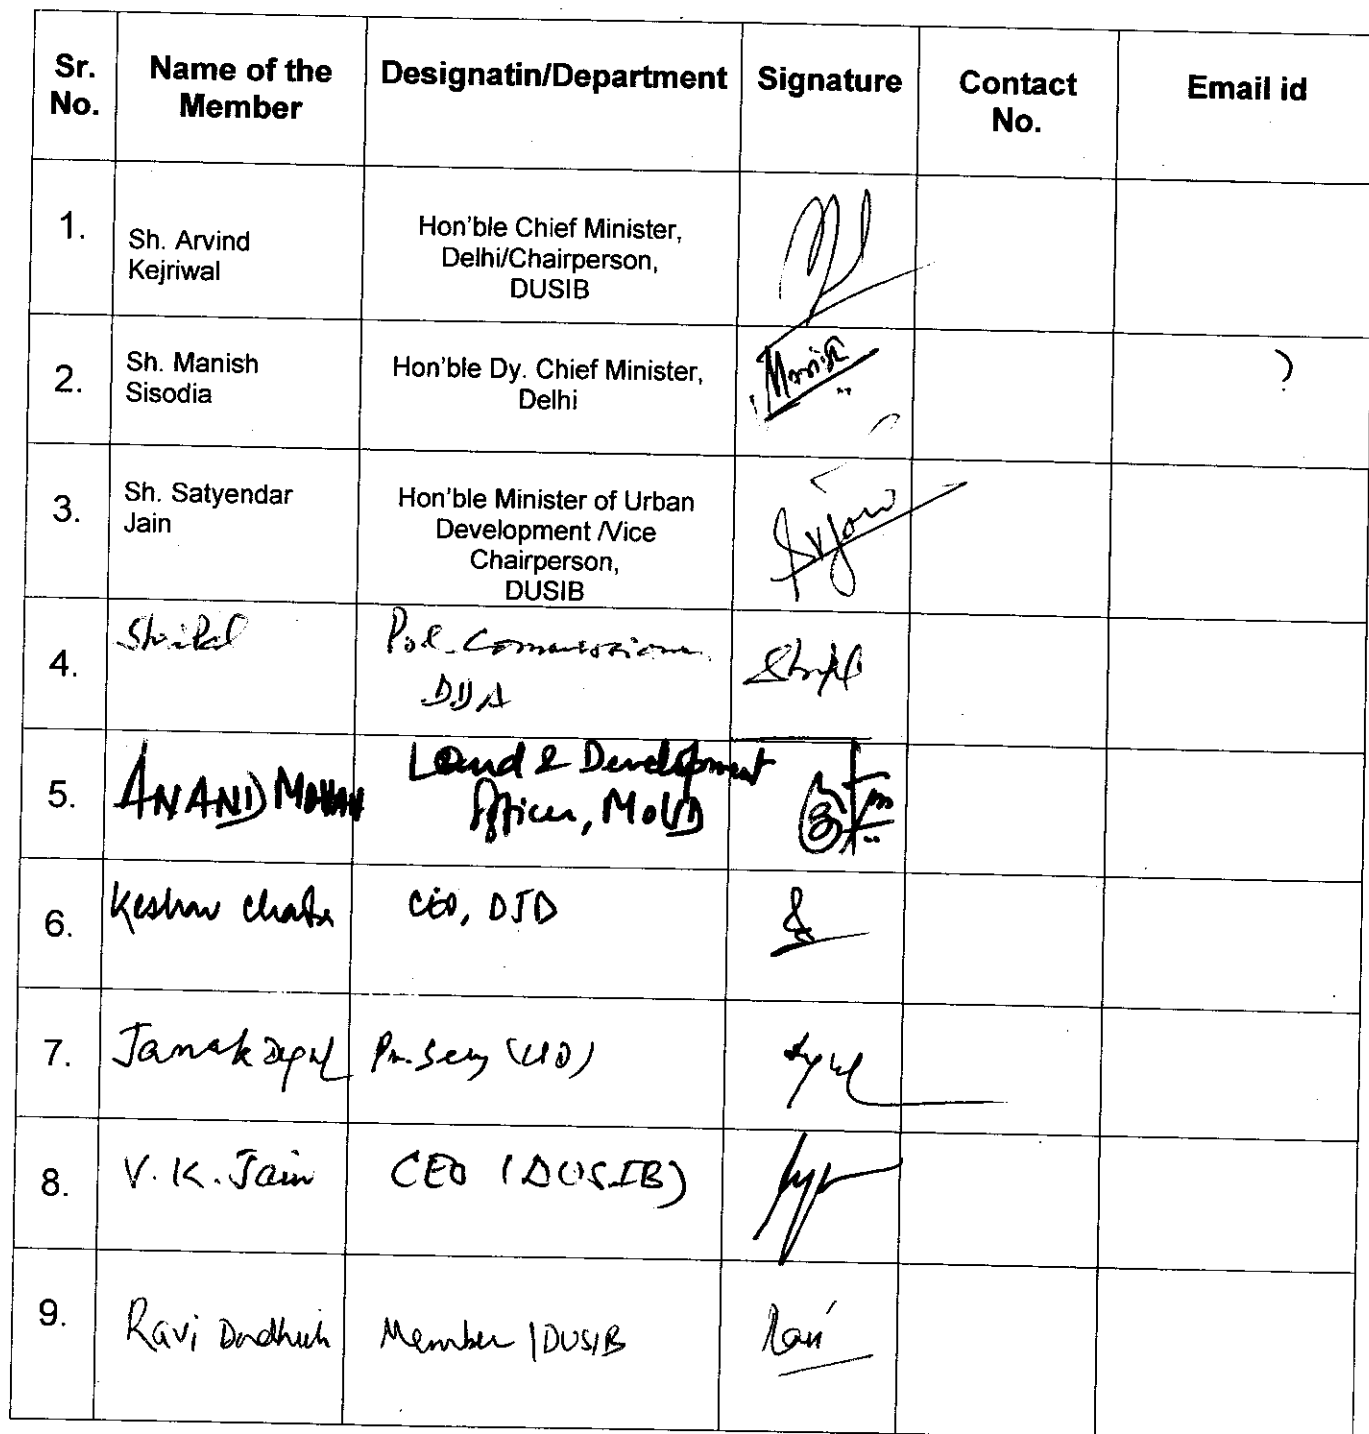 Sr. No. Name of the Member Designatin/Department Signature Contact No. Email id
1. Sh. Arvind Kejriwal Hon'ble Chief Minister, Delhi/Chairperson, DUSIB
2. Sh. Manish Sisodia Hon'ble Dy. Chief Minister, Delhi Manish
3. Sh. Satyendar Jain Hon'ble Minister of Urban Development /Vice Chairperson, DUSIB
4. Shripal DDA
5. ANAND MOHAN Land & Development Officer, MoUD
6. Keshav Chandra CEO, DJB
7. Janak Digal Pr. Secy (UD)
8. V. K. Jain CEO (DUSIB)
9. Ravi Dadhich Member / DUSIB Ravi